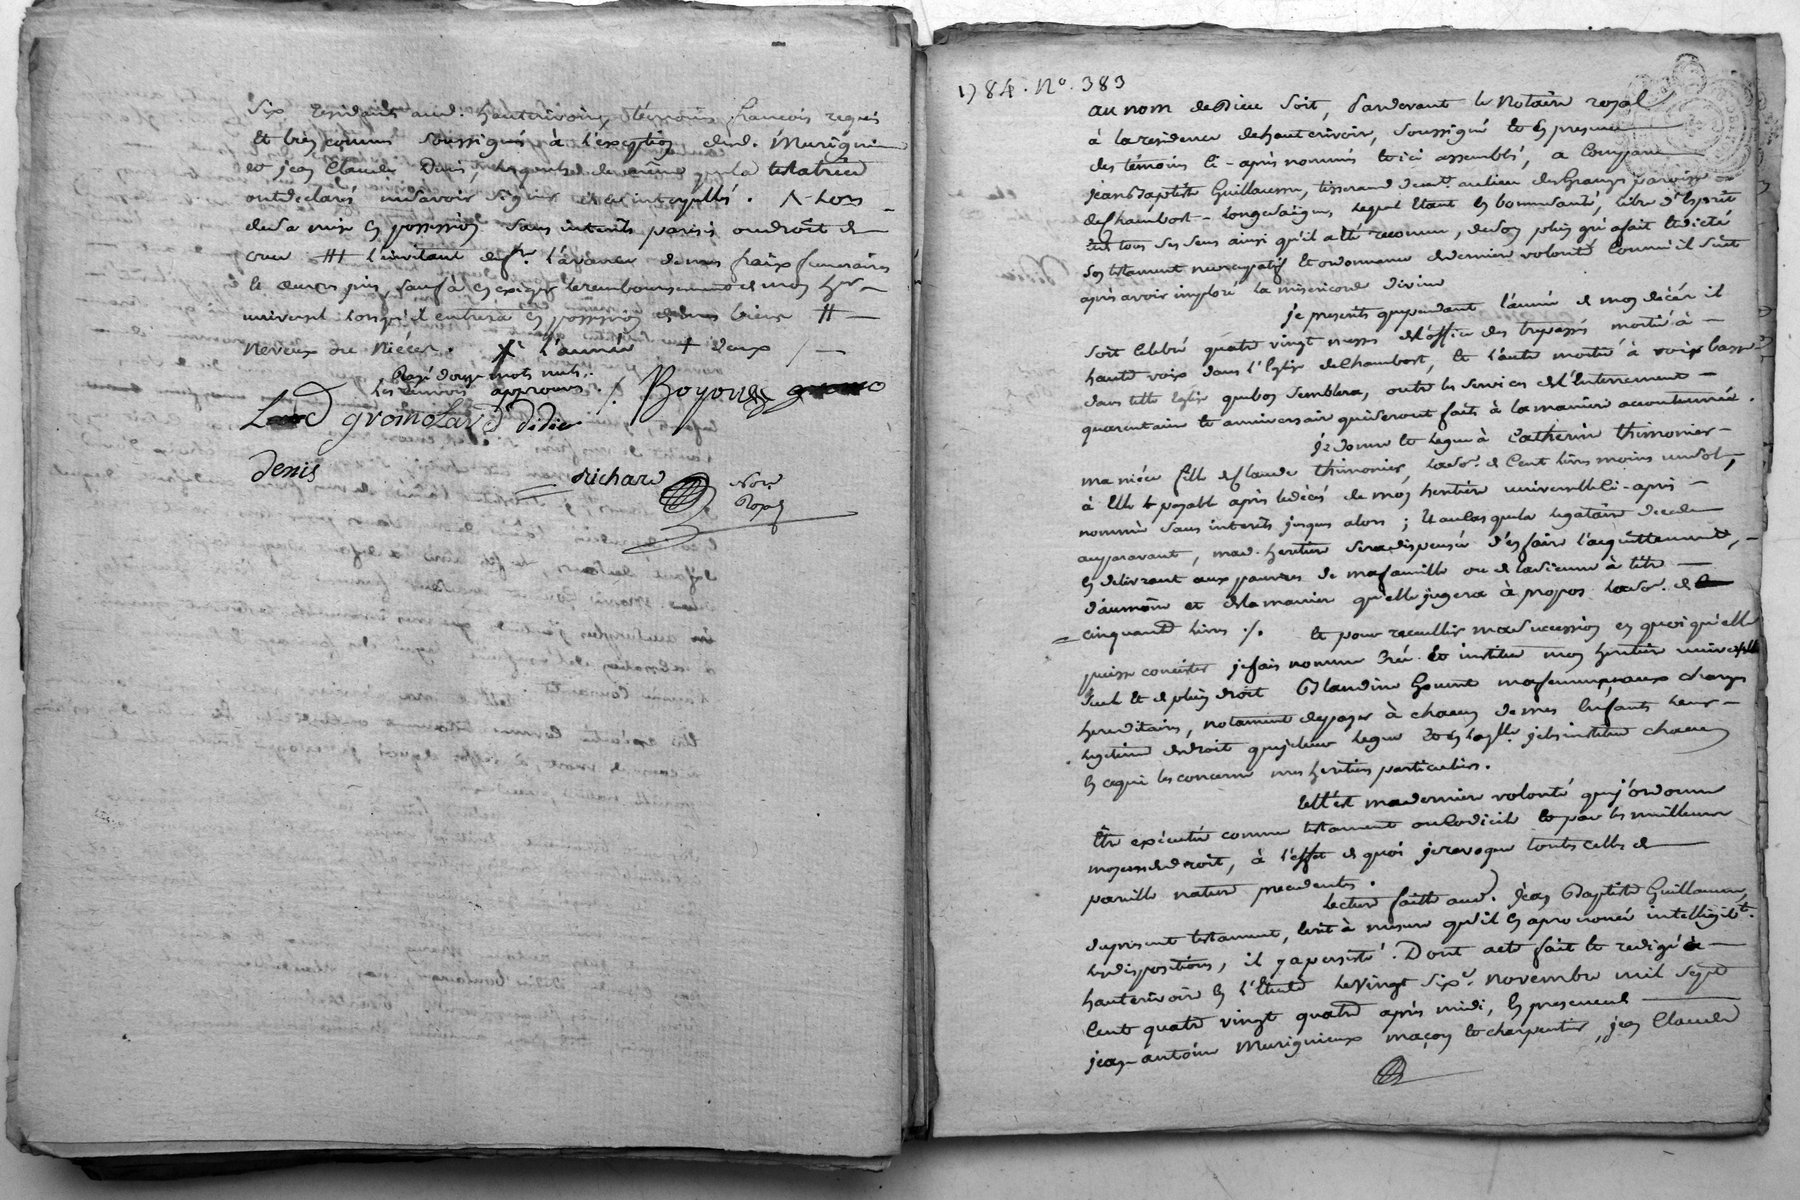 six residants aud. hauterivoire, témoins francois requis
et bien connus soussignés à l'exception dud. Murignieu
et jean Claude Denis, lesquels de même que la testatrice
ont déclarés ne savoir signer de ce interpellés. Λ Lors
de sa mise en possession sans interets parisis ou droit de
crue ## l'invitant de l'avance de mes fraix funeraires
et œuvres pies, sauf à en exiger le remboursement de mon her
universel lorsqu'il entrera en possession de mes biens #
neveux ou nièces. l'aumone + deux /
Rayé douze mots nuls
les renvois approuvés /. Boyoud
gromolard Didier
denis
Richard Not. Royal
1784. N° 383
au nom de Dieu soit, Pardevant le Notaire royal
à la residence de hauterivoire, soussigné et en presence
des témoins ci-après nommés et ici assemblés, a comparu
jean Baptiste Guillaume, tisserand demt. au lieu des Granges paroisse
de Chambost-Longesaigne lequel étant en bonne santé, libre d'esprit
et de tous ses sens ainsi qu'il a été reconnu, de son plein gré a fait et dicté
son testament nuncupatif et ordonnance de derniere volonté comme il suit
après avoir imploré la misericorde divine
je presents que pendant l'année de mon décès il
soit celebré quatre vingt messes de l'office des trepassés moitié à
haute voix dans l'Eglise de Chambost, et l'autre moitié à voix basse
dans telle Eglise que bon semblera, outre les services de l'enterrement
quarentaine et anniversaire qui seront faits à la maniere accoutumée.
je donne et legue à Catherine thimonier
ma niéce fille de Claude thimonier, la so. de Cent livres moins un sol,
à Elle + payable après le décès de mon heritiere universelle ci-après
nommée sans interets jusques alors; et au cas que la legataire decede
auparavant, mad. heritiere sera dispensée d'en faire l'acquittement,
en delivrant aux pauvres de ma famille ou de la sienne à titre
d'aumône et de la maniere qu'elle jugera à propos la so. de
cinquante livres ./. et pour recueillir ma succession en quoi qu'elle
puisse concister je fais nomme crée et institue mon heritiere universelle
seule et de plein droit Blandine ma femme, aux charges
hereditaires, notament de payer à chacun de mes enfants leur
legitime de droit que je leur legue et en laqlle. je les institue chacun
en ce qui les concerne mes heritiers particuliers.
telle est ma derniere volonté que j'ordonne
être exécutée comme testament ou codicile et par les meilleurs
moyens de droit, à l'effet de quoi je revoque toutes celles de
pareille nature precedentes.
lecture faite aud. jean Baptiste Guillaume
du present testament, écrit à mesure qu'il en a prononcé intelligiblt.
les dispositions, il y a persisté. Dont acte fait et redigé à
hauterivoire en l'étude le vingt six. novembre mil sept
Cent quatre vingt quatre après midi, en presence de
jean-antoine Murignieux maçon et charpentier, jean Claude